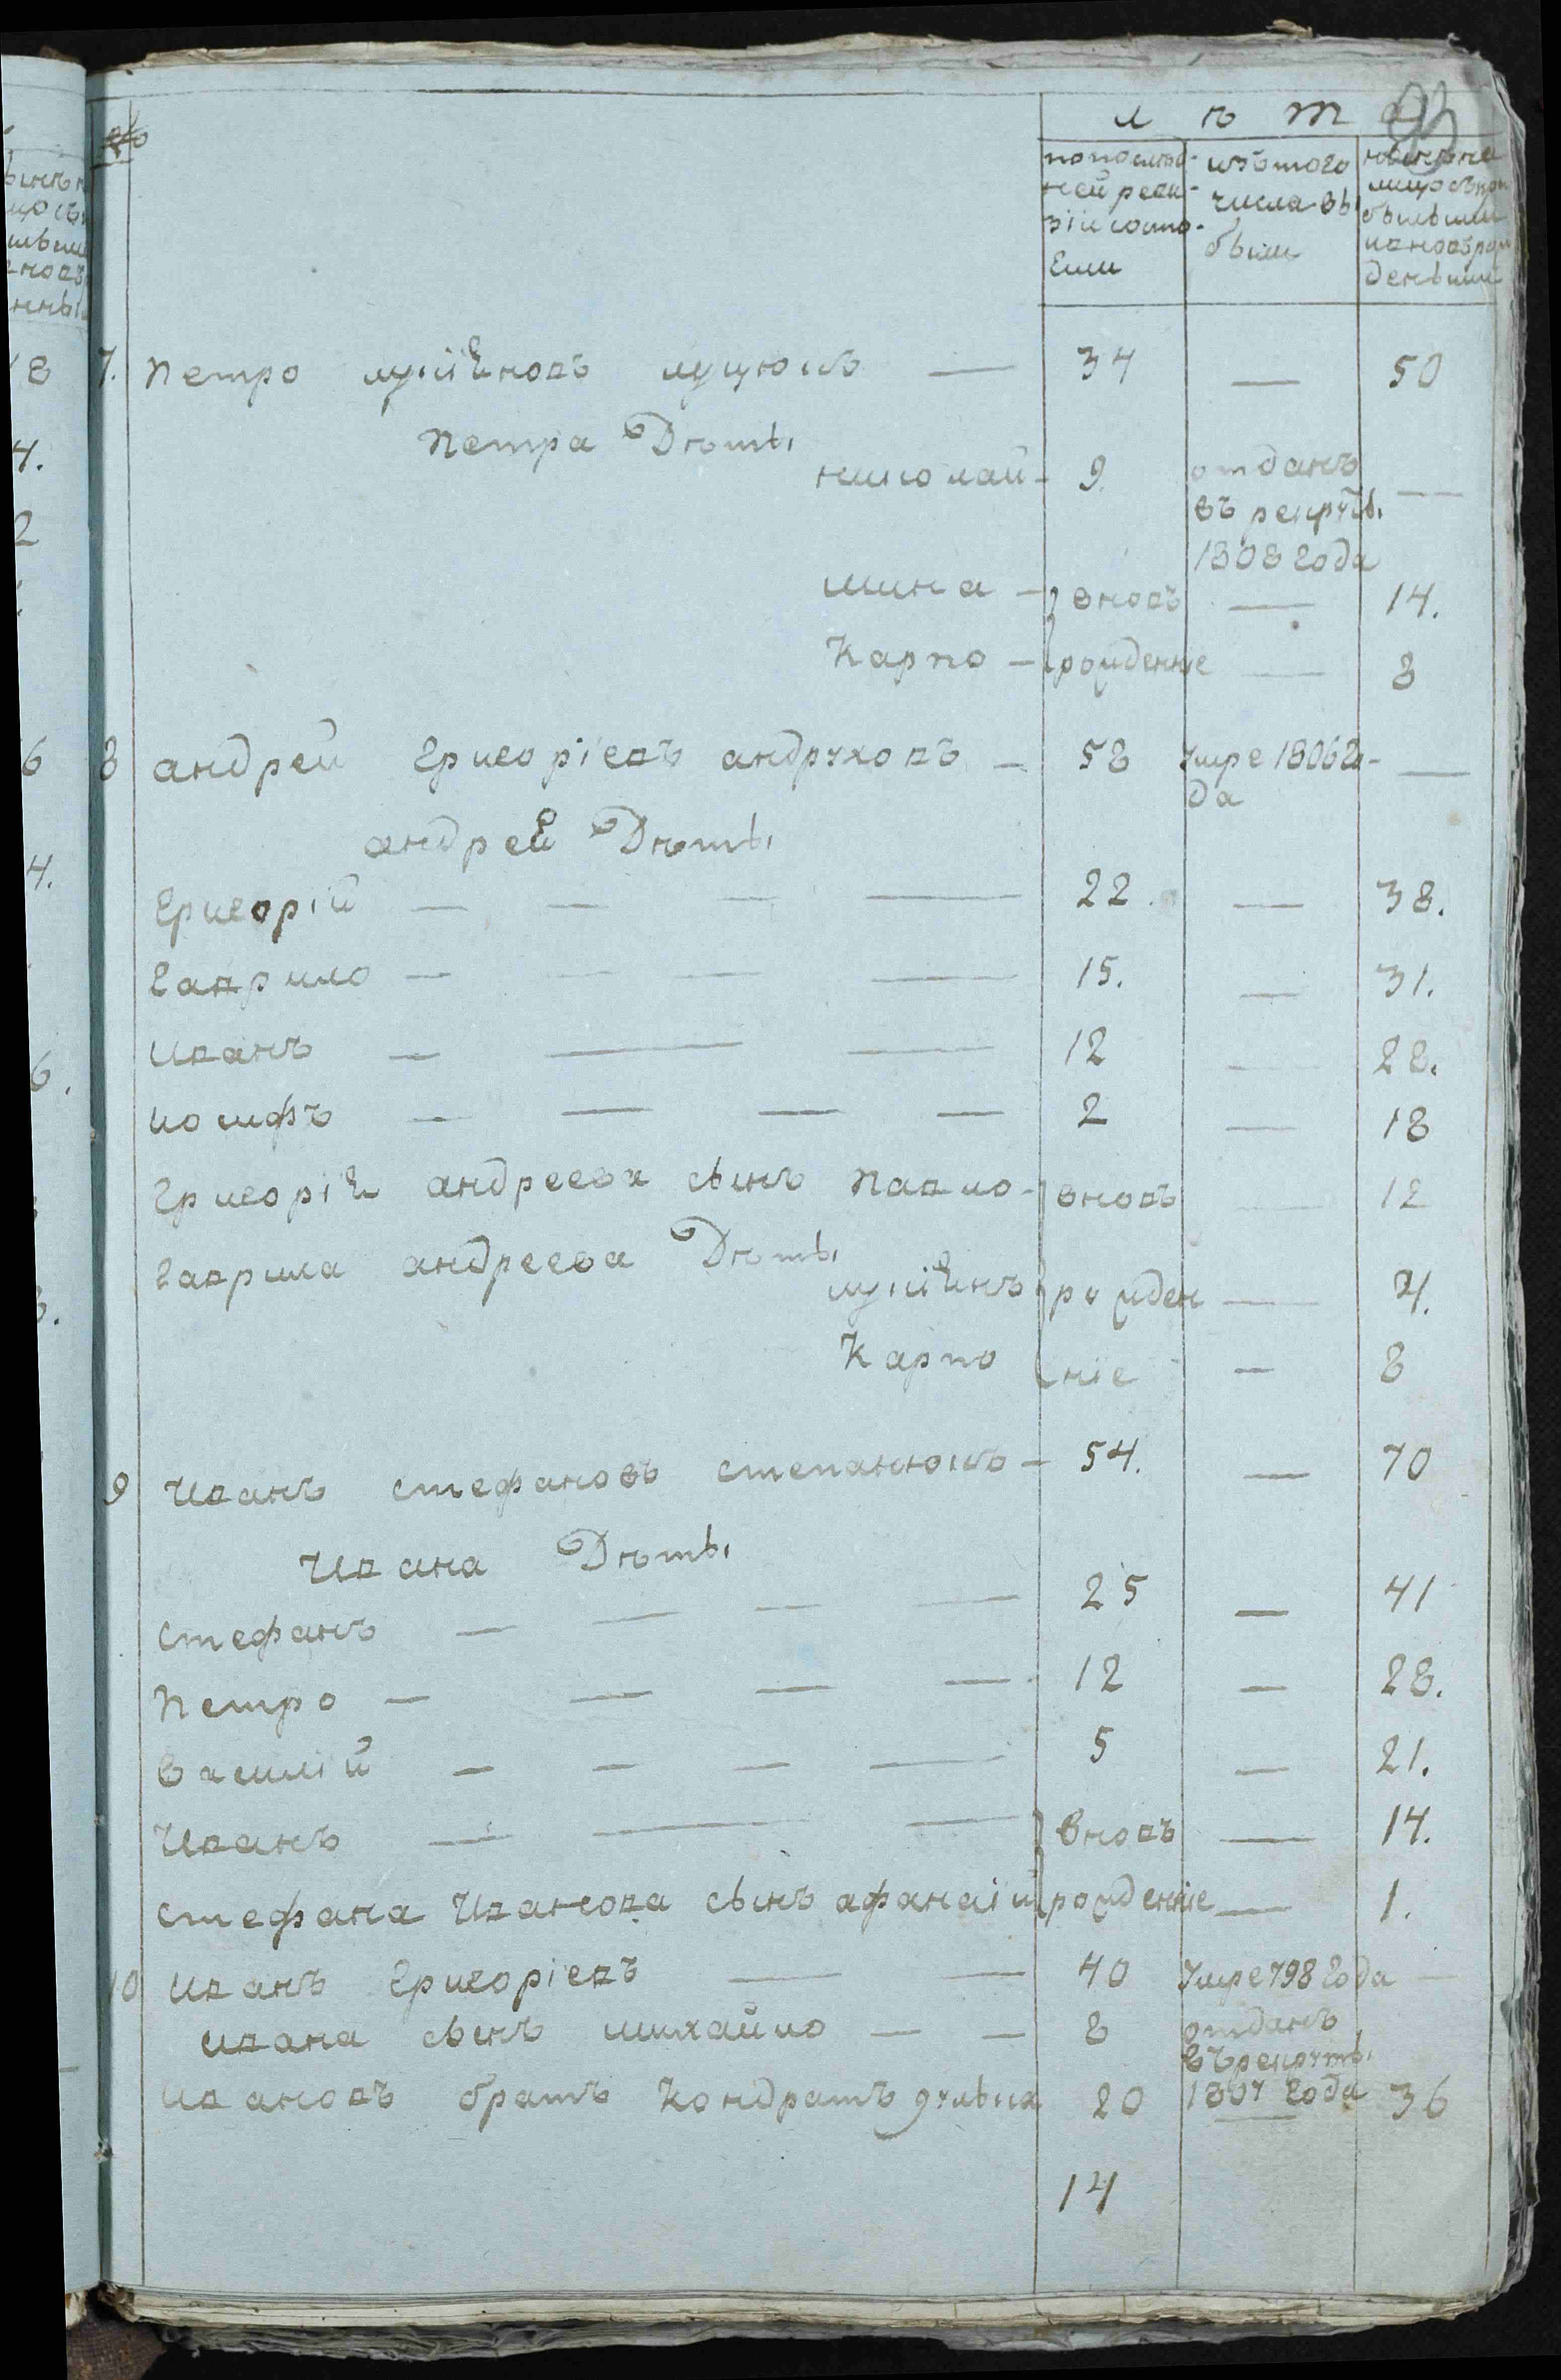 лѣта 93
№
по послед-
ней реви-
зіи состо-
яли
изъ того
числа вы
были
нынѣ на
лицо съ при
былыми
и вновь рож
денными
7. Петро лукіяновъ луцюкъ — 34 — 50
Петра Дѣты
николай - 9. отданъ
въ рекруты —
1808 года
мина - вновь — 14.
Карпо - рожденніе — 8
8 андрей григоріевъ андруховъ - 58 умре 1806 го- —
да
андрея Дѣты
григорій — 22. — 38.
гаврило — 15. — 31.
иванъ — 12 — 28.
иосифъ — 2 — 18
григорія андреева сынъ павло - вновь — 12
гаврила андреева Дѣты
лукіянъ рожден — 4.
Карпо ніе — 8
9 иванъ стефановъ степанюкъ - 54. — 70
ивана Дѣты
стефанъ — 25 — 41
петро — 12 — 28.
василій — 5 — 21.
иванъ — вновь — 14.
стефана иванова сынъ афанасій рожденніе — 1.
10 иванъ григоріевъ — 40 умре 798 года —
ивана сынъ михайло — 8 отданъ
въ рекруты
1807 года
ивановъ братъ Кондратъ 20 — 36
14